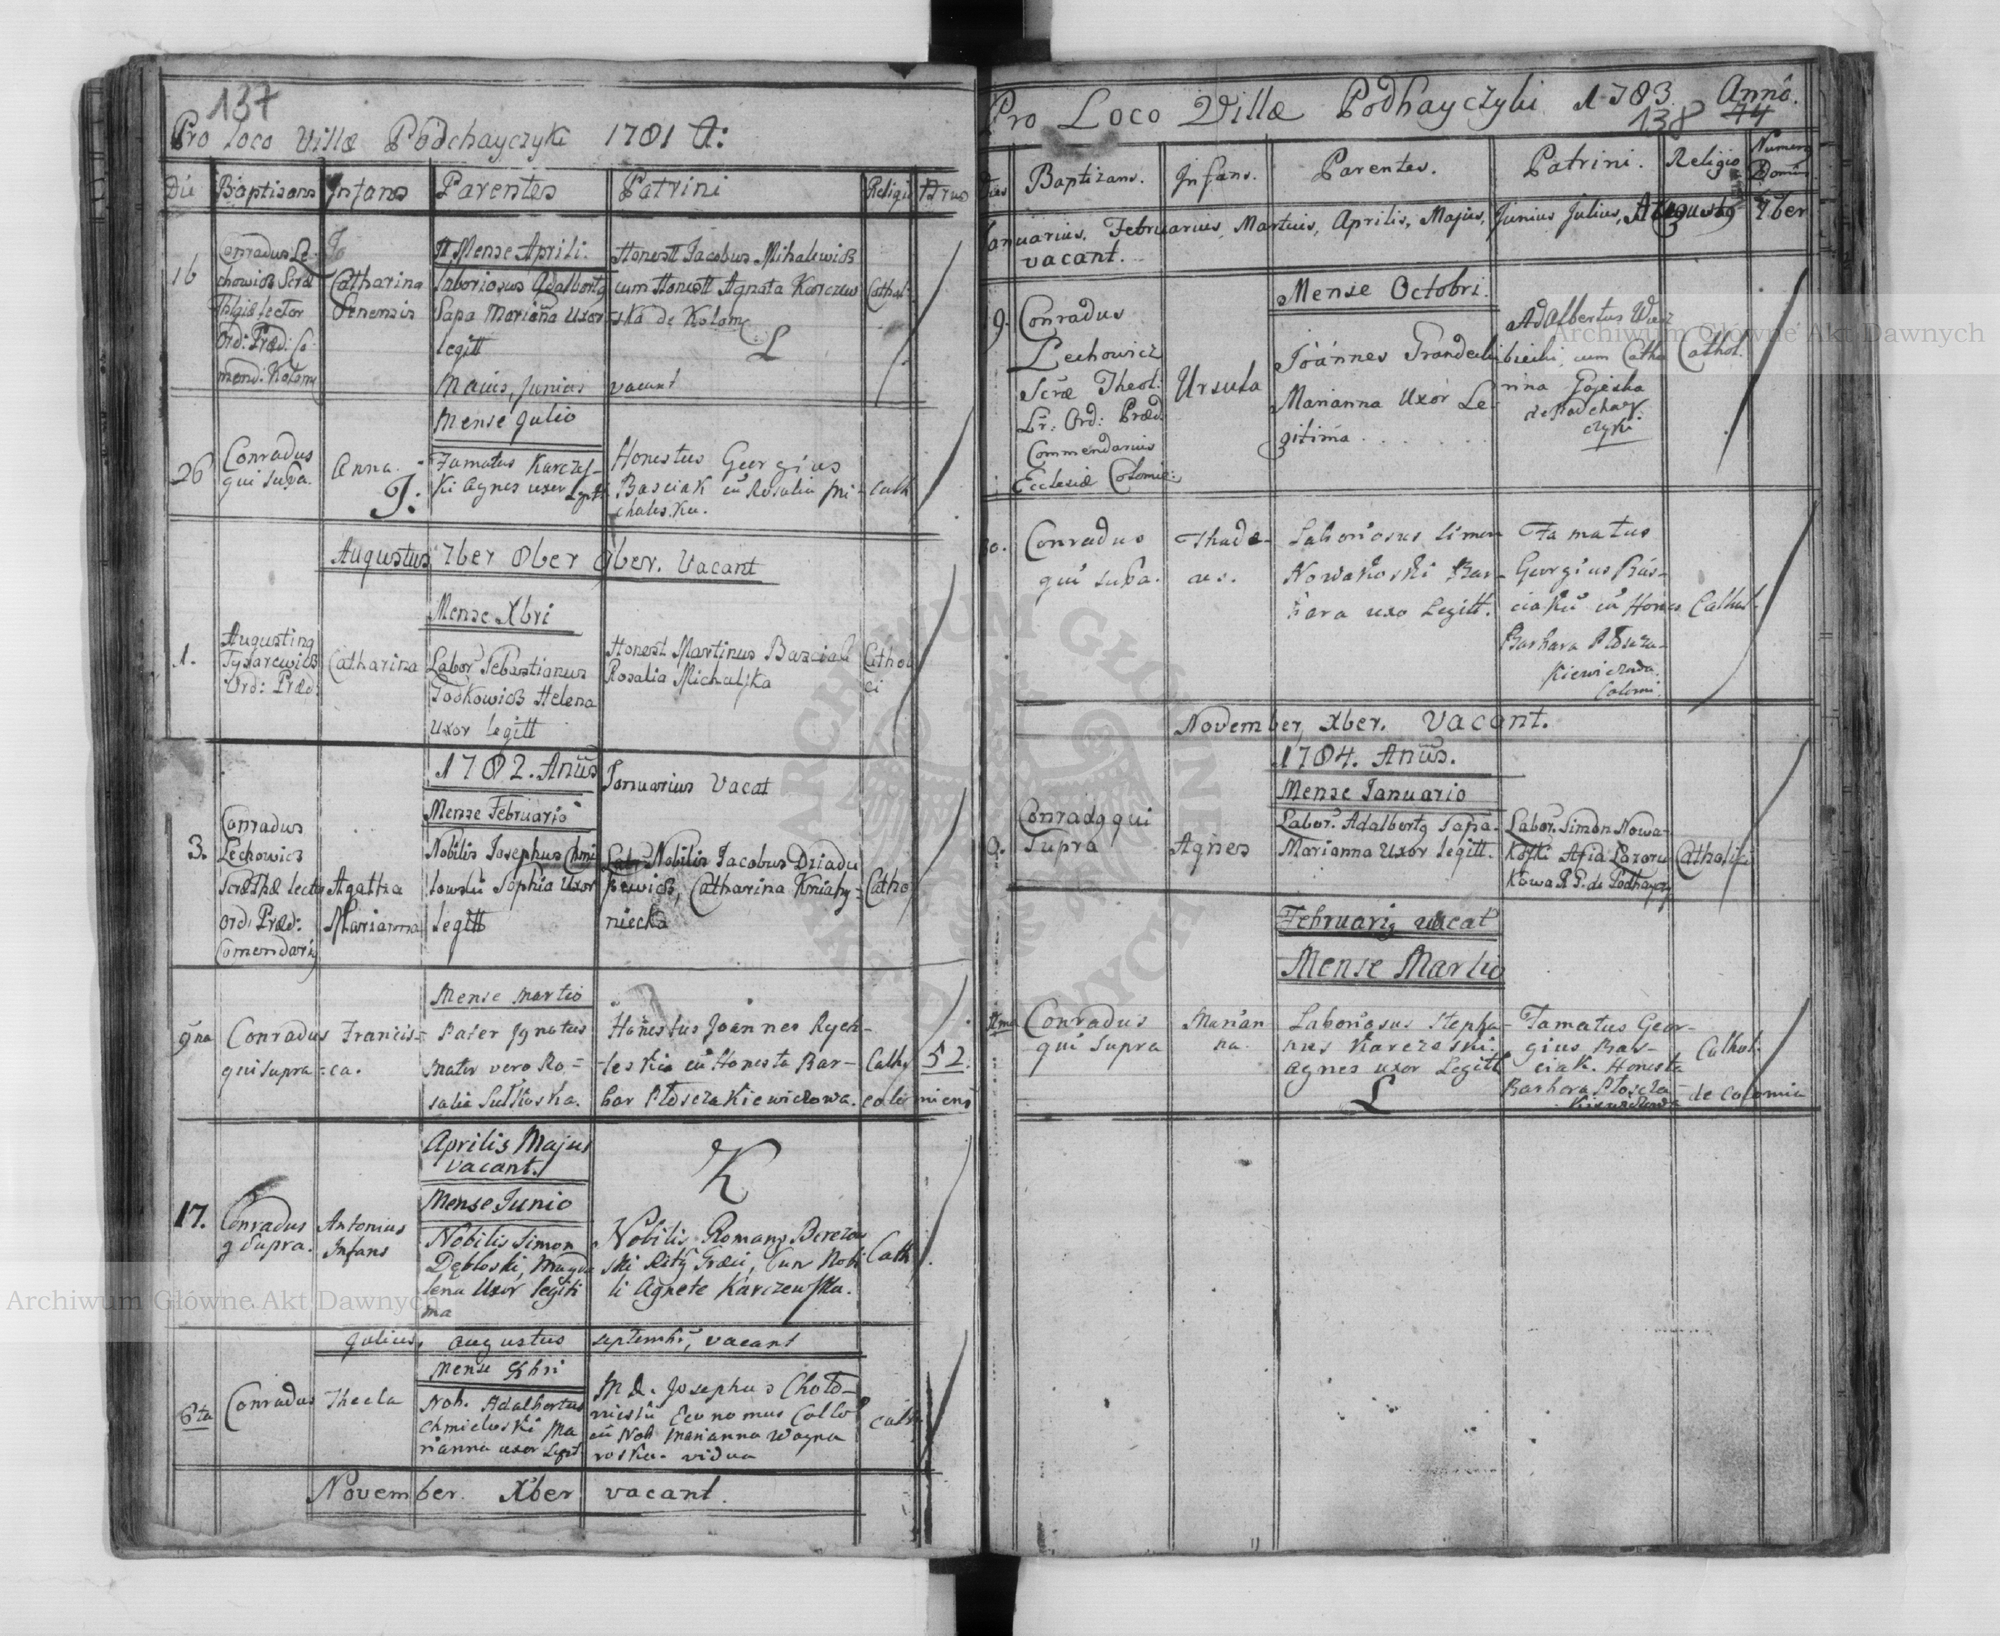 137
Pro Loco Villæ Podchayczyk 1781 A:
Die Baptisans Infans Parentes Patrini Religio Nrus
Mense Aprili.
16
Conradus Le-
chowicz Scræ
Thlgiæ lector
Ord: Præd: Co-
mend: Kolom
Catharina
Senensis
Laboriosus Adalbertg
Sapa Marianna Uxor
legitt
Honestt Jacobus Mihalewicz
cum Honestt Agnata Karczew
ska de Kolom
L
Cathol:
Maius, Junius vacant
Mense Julio
26
Conradus
qui supra.
Anna.
J:
Famatus Karczes-
ki Agnes uxor Legitt
Honestus Georgius
Basciak cu Rosalia Mi-
chales.ka.
Cath
Augustus 7ber 8ber 9ber. Vacant
Mense Xbri
1.
Augusting
Tysarewicz
Ord: Præd:
Catharina
Labor Sebastianus
Toskowicz Helena
Uxor legitt
Honest Martinus Basciak
Rosalia Michalska
Cathol
ci
1782. Anus
Januarius Vacat
Mense Februario
3.
Conradus
Lechowicz
Scræ Thæ lector
Ord: Præd:
Comendarig
Agatha
Marianna
Nobilis Josephus Chmi
lowski Sophia Uxor
legitt
Nobilis Jacobus Dziadu
szewicz, Catharina Kniahy-
niecka
Catho
Mense Martio
9na
Conradus
qui supra
Francis-
ca.
Pater Ignatus
mater vero Ro-
salia Sulkoska.
Honestus Joannes Rych-
leskie cu Honesta Bar-
bar Ploszczakiewiczowa.
Cath
colo miens
52.
Aprilis Majus
vacant.
K
Mense Junio
17.
Conradus
q supra.
Antonius
Infans
Nobilis Simon
Debloski, Magda
lena Uxor legiti
ma
Nobilis Romang Berezow
ski Ritg Græci, Cum Nobi
li Agnete Karczewska.
Cath
Julius, Augustus septembr, vacant
Mense Xbri
6ta
Conradus
Thecla
Nob. Adalbertus
Chmieloski Ma
rianna uxor Legitt
M D. Josephus Cholo-
niewski Economus
cu Nob Marianna Wagna
roska. vidua
cath
November. Xber vacant.
Pro Loco Villæ Podhayczyki 1783. Anno.
138 74
Dies Baptizans. Infans. Parentes. Patrini. Religio Numerg Domus
Januarius, Februarius, Martius, Aprilis, Majus, Junius Julius, Augustg 7ber
vacant.
Mense Octobri.
9.
Conradus
Lechowicz
Scræ Theol:
Lr: Ord: Præd.
Commendarius
Ecclesiæ Colomie:
Ursula
Joannes Grondecki
Marianna Uxor Le-
gitima
Adalbertus Wierz
bicki, cum Catha
rina Gajeska
de Podchay
czyki
Cathol.
30.
Conradus
qui supra.
Thade-
us.
Laboriosus Simon
Nowakoski Bar-
bara uxo Legitt.
Famatus
Georgius Bas-
ciaku cu Hones
Barbara Ploszcza-
kiewiczowa
Colomi.
Cathol.
November, Xber. Vacant.
1784. Anus.
Mense Januario
9.
Conradg qui
Supra
Agnes
Labor. Adalbertg Sapa-
Marianna Uxor legitt.
Labor. Simon Nowa-
koski Asia Lazoru
kowa R G. de Podhayczy
Catholici
Februarig vacat
Mense Martio
Conradus
qui supra
Marian
na.
Laboriosus Stepha-
nus Karczeski.
Agnes uxor Legitt
L
Famatus Geor-
gius Bas-
ciak. Honesta
Barbara Ploszcza-
kiewiczowa
Cathol.
de Colomia
Archiwum Główne Akt Dawnych
Archiwum Główne Akt Dawnych
ARCHIWUM GŁÓWNE AKT DAWNYCH